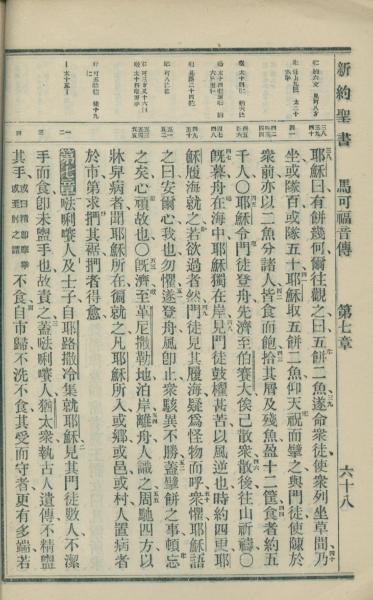 新約聖書 馬可福音傳 第七章 六十八
耶穌曰有餅幾何爾往觀之曰五餅二魚遂命衆徒使衆列坐草間乃
坐或隊百或隊五十耶穌取五餅二魚仰天祝而擘之與門徒使陳於
衆前亦以二魚分諸人皆食而飽拾其屑及殘魚盈十二筐食者約五
千人〇耶穌令門徒登舟先濟至伯賽大俟己散衆散後往山祈禱〇
旣暮舟在海中耶穌獨在岸見門徒鼓櫂甚苦以風逆也時約四更耶
穌履海就之若欲過者然門徒見其履海疑爲怪物而呼衆懼耶穌語
之曰安爾心我也勿懼遂登舟風卽止衆駭異不勝蓋擘餅之事頓忘
之矣心頑故也〇旣濟至革尼撒勒地泊岸離舟人識之周馳四方以
牀舁病者聞耶穌所在卽就之凡耶穌所入或鄉或邑或村人置病者
於市第求捫其裾捫者得愈
第七章 𠵽唎㘔人及士子自耶路撒冷集就耶穌見其門徒數人不潔
手而食卽未盥手也故責之蓋𠵽唎㘔人猶太衆執古人遺傳不精盥
其手或曰精卽摩拳或至肘之謂不食自市歸不洗不食其受而守者更有多端若